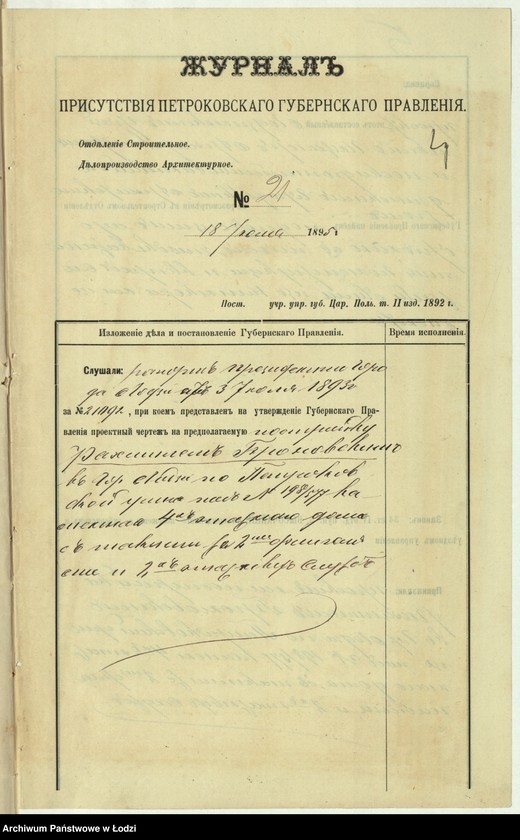 ЖУРНАЛЪ
ПРИСУТСТВІЯ ПЕТРОКОВСКАГО ГУБЕРНСКАГО ПРАВЛЕНІЯ.
4
Отдѣленіе Строительное.
Дѣлопроизводство Архитектурное.
№ 21
18 Іюля 1895 г
Пост. учр. упр. губ. Цар. Поль. т. II изд. 1892 г.
Изложеніе дѣла и постановленіе Губернскаго Правленія.
Время исполненія.
Слушали: рапортъ президента горо
да Лодзи 3 Іюля 1895
за №, при коемъ представленъ на утвержденіе Губернскаго Пра-
вленія проектный чертежъ на предполагаемую постройку
въ гор. Лодзи по
ской улицѣ подъ № ка
меннаго 4хъ этажнаго дома
съ такими же 2мя флигеля
ми и 2хъ этаж. служб
Archiwum Państwowe w Łodzi